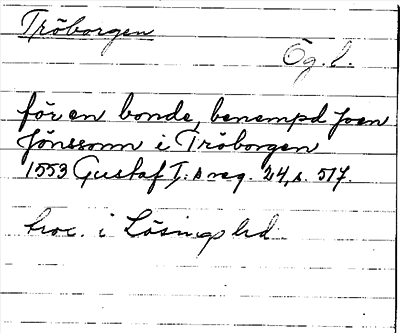 Tröborgen
Ög. l.
för en bonde, benempd Joen
Jönssonn i Tröborgen
1553 Gustaf I:s reg. 24, s. 517.
i Lösings hd